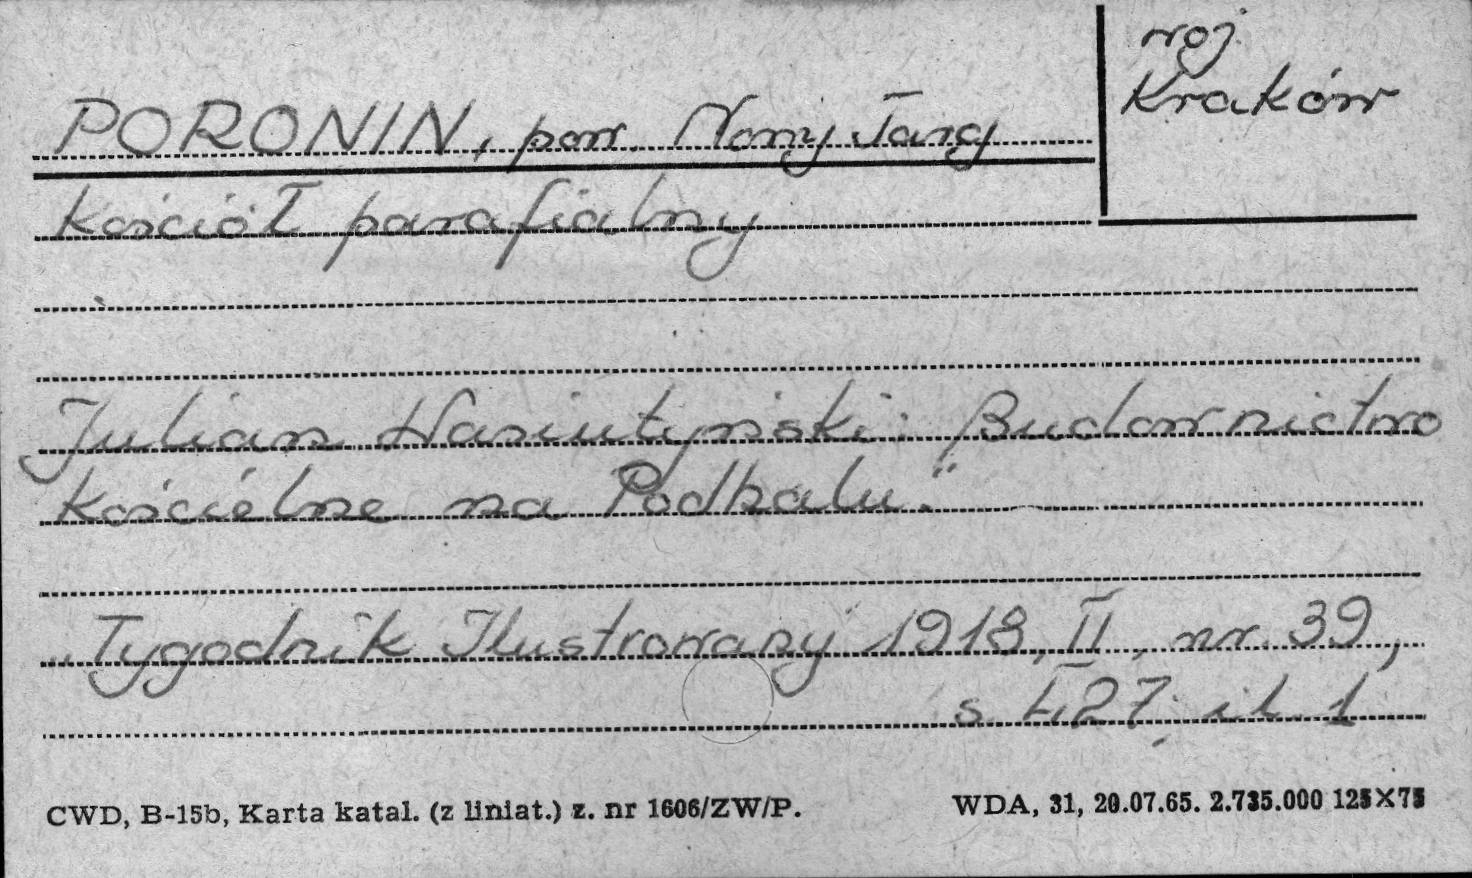 woj.
Kraków
PORONIN, pow. Nowy Targ
kościół parafialny
Julian Wasiutyński: Budownictwo
kościelne na Podhalu."
"Tygodnik Ilustrowany 1918, II, nr. 39,
s. 427; il. 1
CWD, B-15b, Karta katal. (z liniat.) z. nr 1606/ZW/P.
WDA, 31, 20.07.65. 2.735.000 125×75